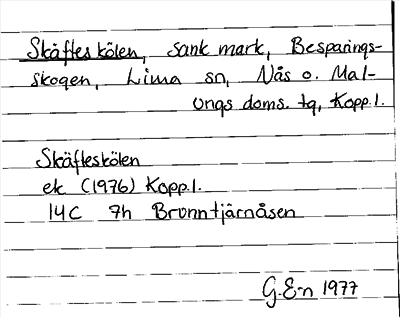 Skäfteskölen, sank mark, Besparings-
skogen, Lima sn, Nås o. Mal-
ungs doms. tg, Kopp.l.
Skäfteskölen
ek (1976) Kopp.l.
14C 7h Bronntjärnåsen
G.E-n 1977